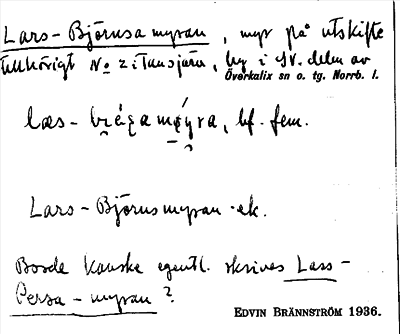 Lars-Björnsamyran, myr på utskifte
tillhörigt No 2 i Tansjärv, by i SV. delen av
Överkalix sn o. tg. Norrb. l.
bf. fem.
Lars-Björnsmyran ek.
Borde kanske egentl. skrivas Lass-
Persa-myran?
EDVIN BRÄNNSTRÖM 1936.